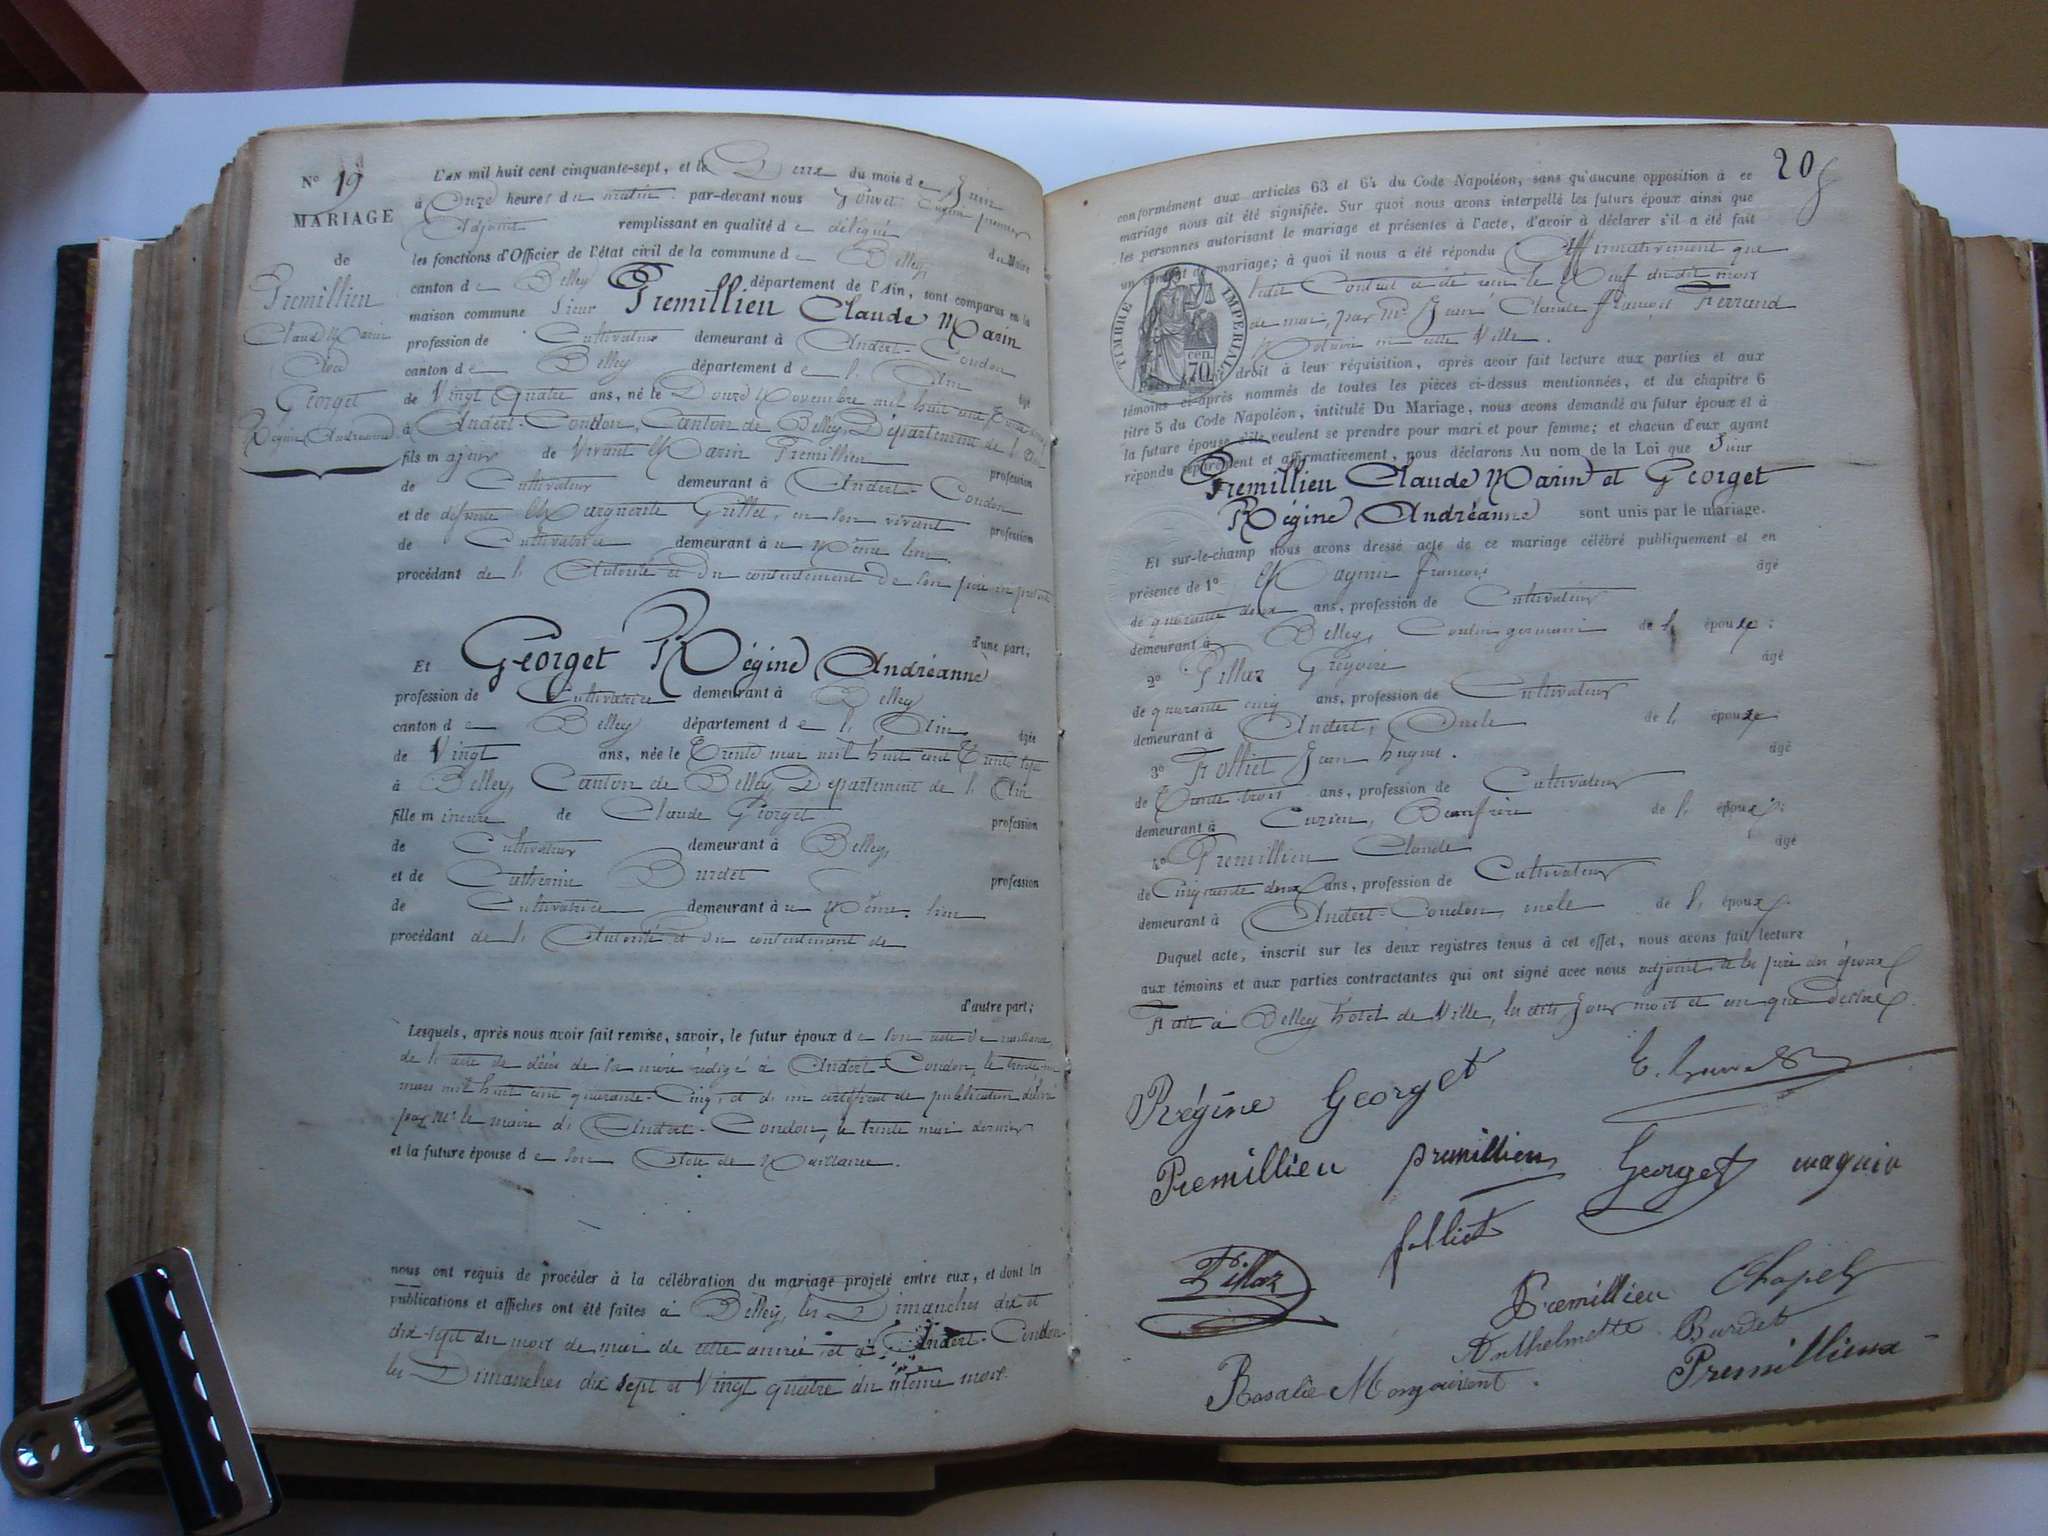 N° 19
MARIAGE
de
Premillien
Claude Marin
Avec
Georget
Régine Andréanne
L'AN mil huit cent cinquante-sept, et le Deux du mois de Juin
à Onze heures du matin par-devant nous premier
Adjoint remplissant en qualité de délégué du Maire
les fonctions d'Officier de l'état civil de la commune de Belley,
canton de Belley département de l'Ain, sont comparus en la
maison commune Sieur Premillien Claude Marin
profession de Cultivateur demeurant à Andert-Condon
canton de Belley département de l'Ain âgé
de Vingt Quatre ans, né le Douze Novembre mil huit cent
à Andert-Condon, Canton de Belley, Département de l'Ain
fils majeur de Vivant Marin Premillien profession
de Cultivateur demeurant à Andert-Condon
et de défunte Marguerite Grillet, en son vivant profession
de Cultivatrice demeurant au Même lieu
procédant de l'Autorité et du consentement de son père ici présent
d'une part,
Et Georget Régine Andréanne
profession de Cultivatrice demeurant à Belley
canton de Belley département de l'Ain âgée
de Vingt ans, née le Trente mai mil huit cent Trente sept
à Belley, Canton de Belley, Département de l'Ain
fille mineure de Claude Georget profession
de Cultivateur demeurant à Belley,
et de Catherine Burdet profession
de Cultivatrice demeurant au Même lieu
procédant de l'Autorité et du consentement de
d'autre part;
Lesquels, après nous avoir fait remise, savoir, le futur époux de son acte de naissance,
de l'acte de décès de sa mère rédigé à Andert-Condon, le
mars mil huit cent quarante-Cinq, et d'un certificat de publication délivré
par Mr le maire d'Andert-Condon, le trente mai dernier
et la future épouse de son Acte de Naissance.
nous ont requis de procéder à la célébration du mariage projeté entre eux, et dont les
publications et affiches ont été faites à Belley, les Dimanches dix et
dix-sept du mois de mai de cette année et à Andert-Condon
les Dimanches dix sept et Vingt quatre du même mois.
20
conformément aux articles 63 et 64 du Code Napoléon, sans qu'aucune opposition à ce
mariage nous ait été signifiée. Sur quoi nous avons interpellé les futurs époux ainsi que
les personnes autorisant le mariage et présentes à l'acte, d'avoir à déclarer s'il a été fait
un contrat de mariage; à quoi il nous a été répondu Affirmativement que
ledit Contrat a été reçu le Neuf dudit mois
de mai, par Me Jean Claude François Ferrand
Notaire en cette Ville.
TIMBRE IMPERIAL
70 cen.
droit à leur réquisition, après avoir fait lecture aux parties et aux
témoins ci-après nommés de toutes les pièces ci-dessus mentionnées, et du chapitre 6
titre 5 du Code Napoléon, intitulé Du Mariage, nous avons demandé au futur époux et à
la future épouse s'ils veulent se prendre pour mari et pour femme; et chacun d'eux ayant
répondu séparément et affirmativement, nous déclarons Au nom de la Loi que Sieur
Premillien Claude Marin et Georget
Régine Andréanne sont unis par le mariage.
Et sur-le-champ nous avons dressé acte de ce mariage célébré publiquement et en
présence de 1° Magnin François âgé
de quarante deux ans, profession de Cultivateur
demeurant à Belley, Cousin germain de l'épouse;
2° Pillaz Grégoire âgé
de quarante cinq ans, profession de Cultivateur
demeurant à Andert, Oncle de l'épouse;
3° Folliet Jean hugues. âgé
de Trente trois ans, profession de Cultivateur
demeurant à Cuzieu, Beaufrère de l'époux;
4° Premillien Claude âgé
de Cinquante deux ans, profession de Cultivateur
demeurant à Andert-Condon, oncle de l'époux.
Duquel acte, inscrit sur les deux registres tenus à cet effet, nous avons fait lecture
aux témoins et aux parties contractantes qui ont signé avec nous adjoint, et les père des époux
Fait à Belley hôtel de Ville, les dits jour mois et an que dessus.
Régine Georget
Premillieu premillien Georget magnin
folliet
Pillaz
Premillieu Chapel
Anthelmette Burdet
Rosalie Mongourent Premillieux